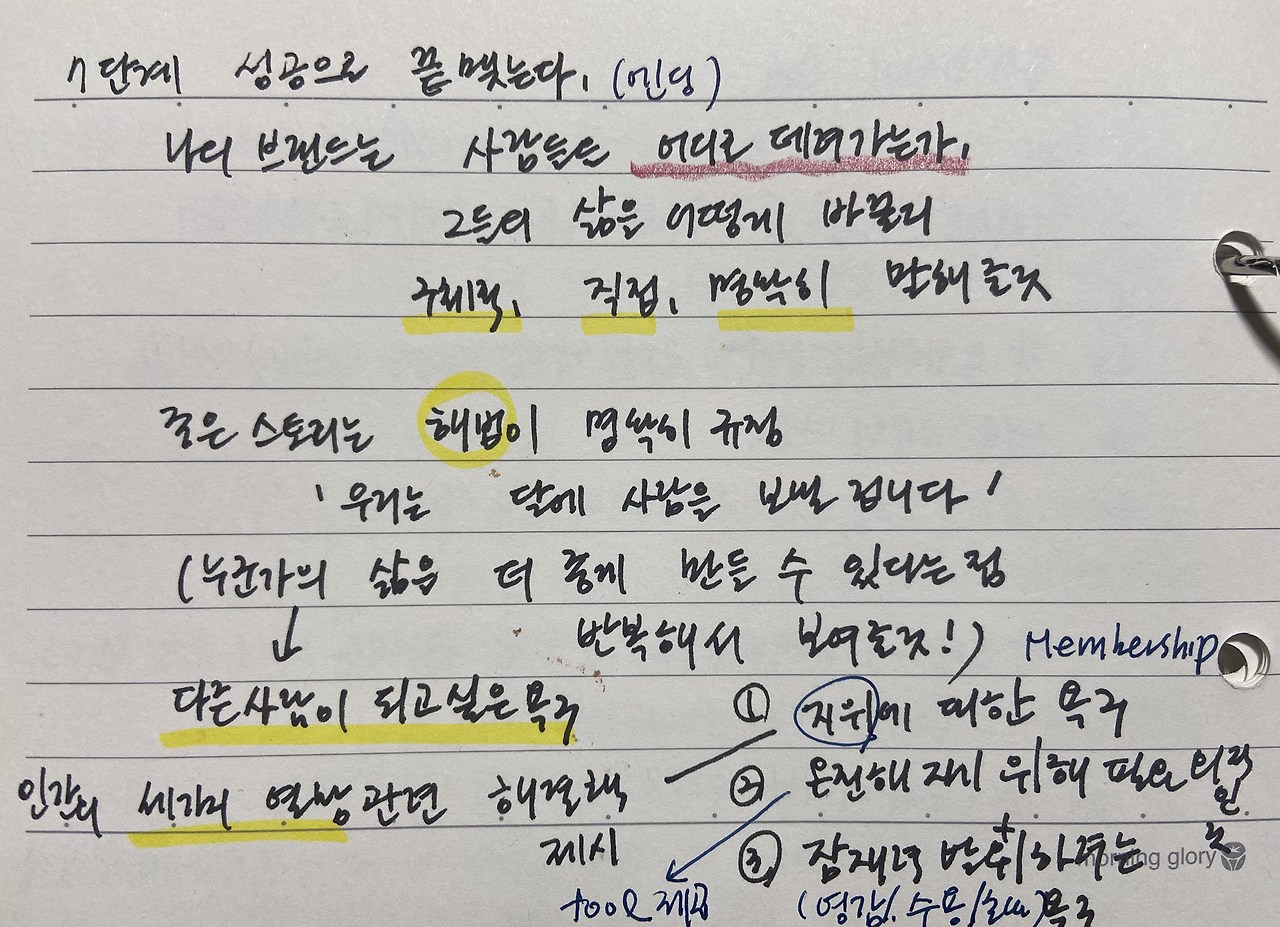 7단계 성공으로 끝맺는다. (엔딩)
나의 브랜드는 사람들을 어디로 데려가는가.
그들의 삶을 어떻게 바꿀지
구체적, 직접, 명확히 말해줄것
좋은 스토리는 해법이 명확히 규정
'우리는 달에 사람을 보낼 겁니다'
(누군가의 삶을 더 좋게 만들 수 있다는 점
반복해서 보여줄것!) Membership
다른사람이 되고싶은 욕구
① 지위에 대한 욕구
인간의 세가지 열망 관련 해결책
제시
② 온전해지기 위해 필요 외적
인
것
③ 잠재력 발휘하려는
욕구
tool 제공
(영감/수용/
morning glory